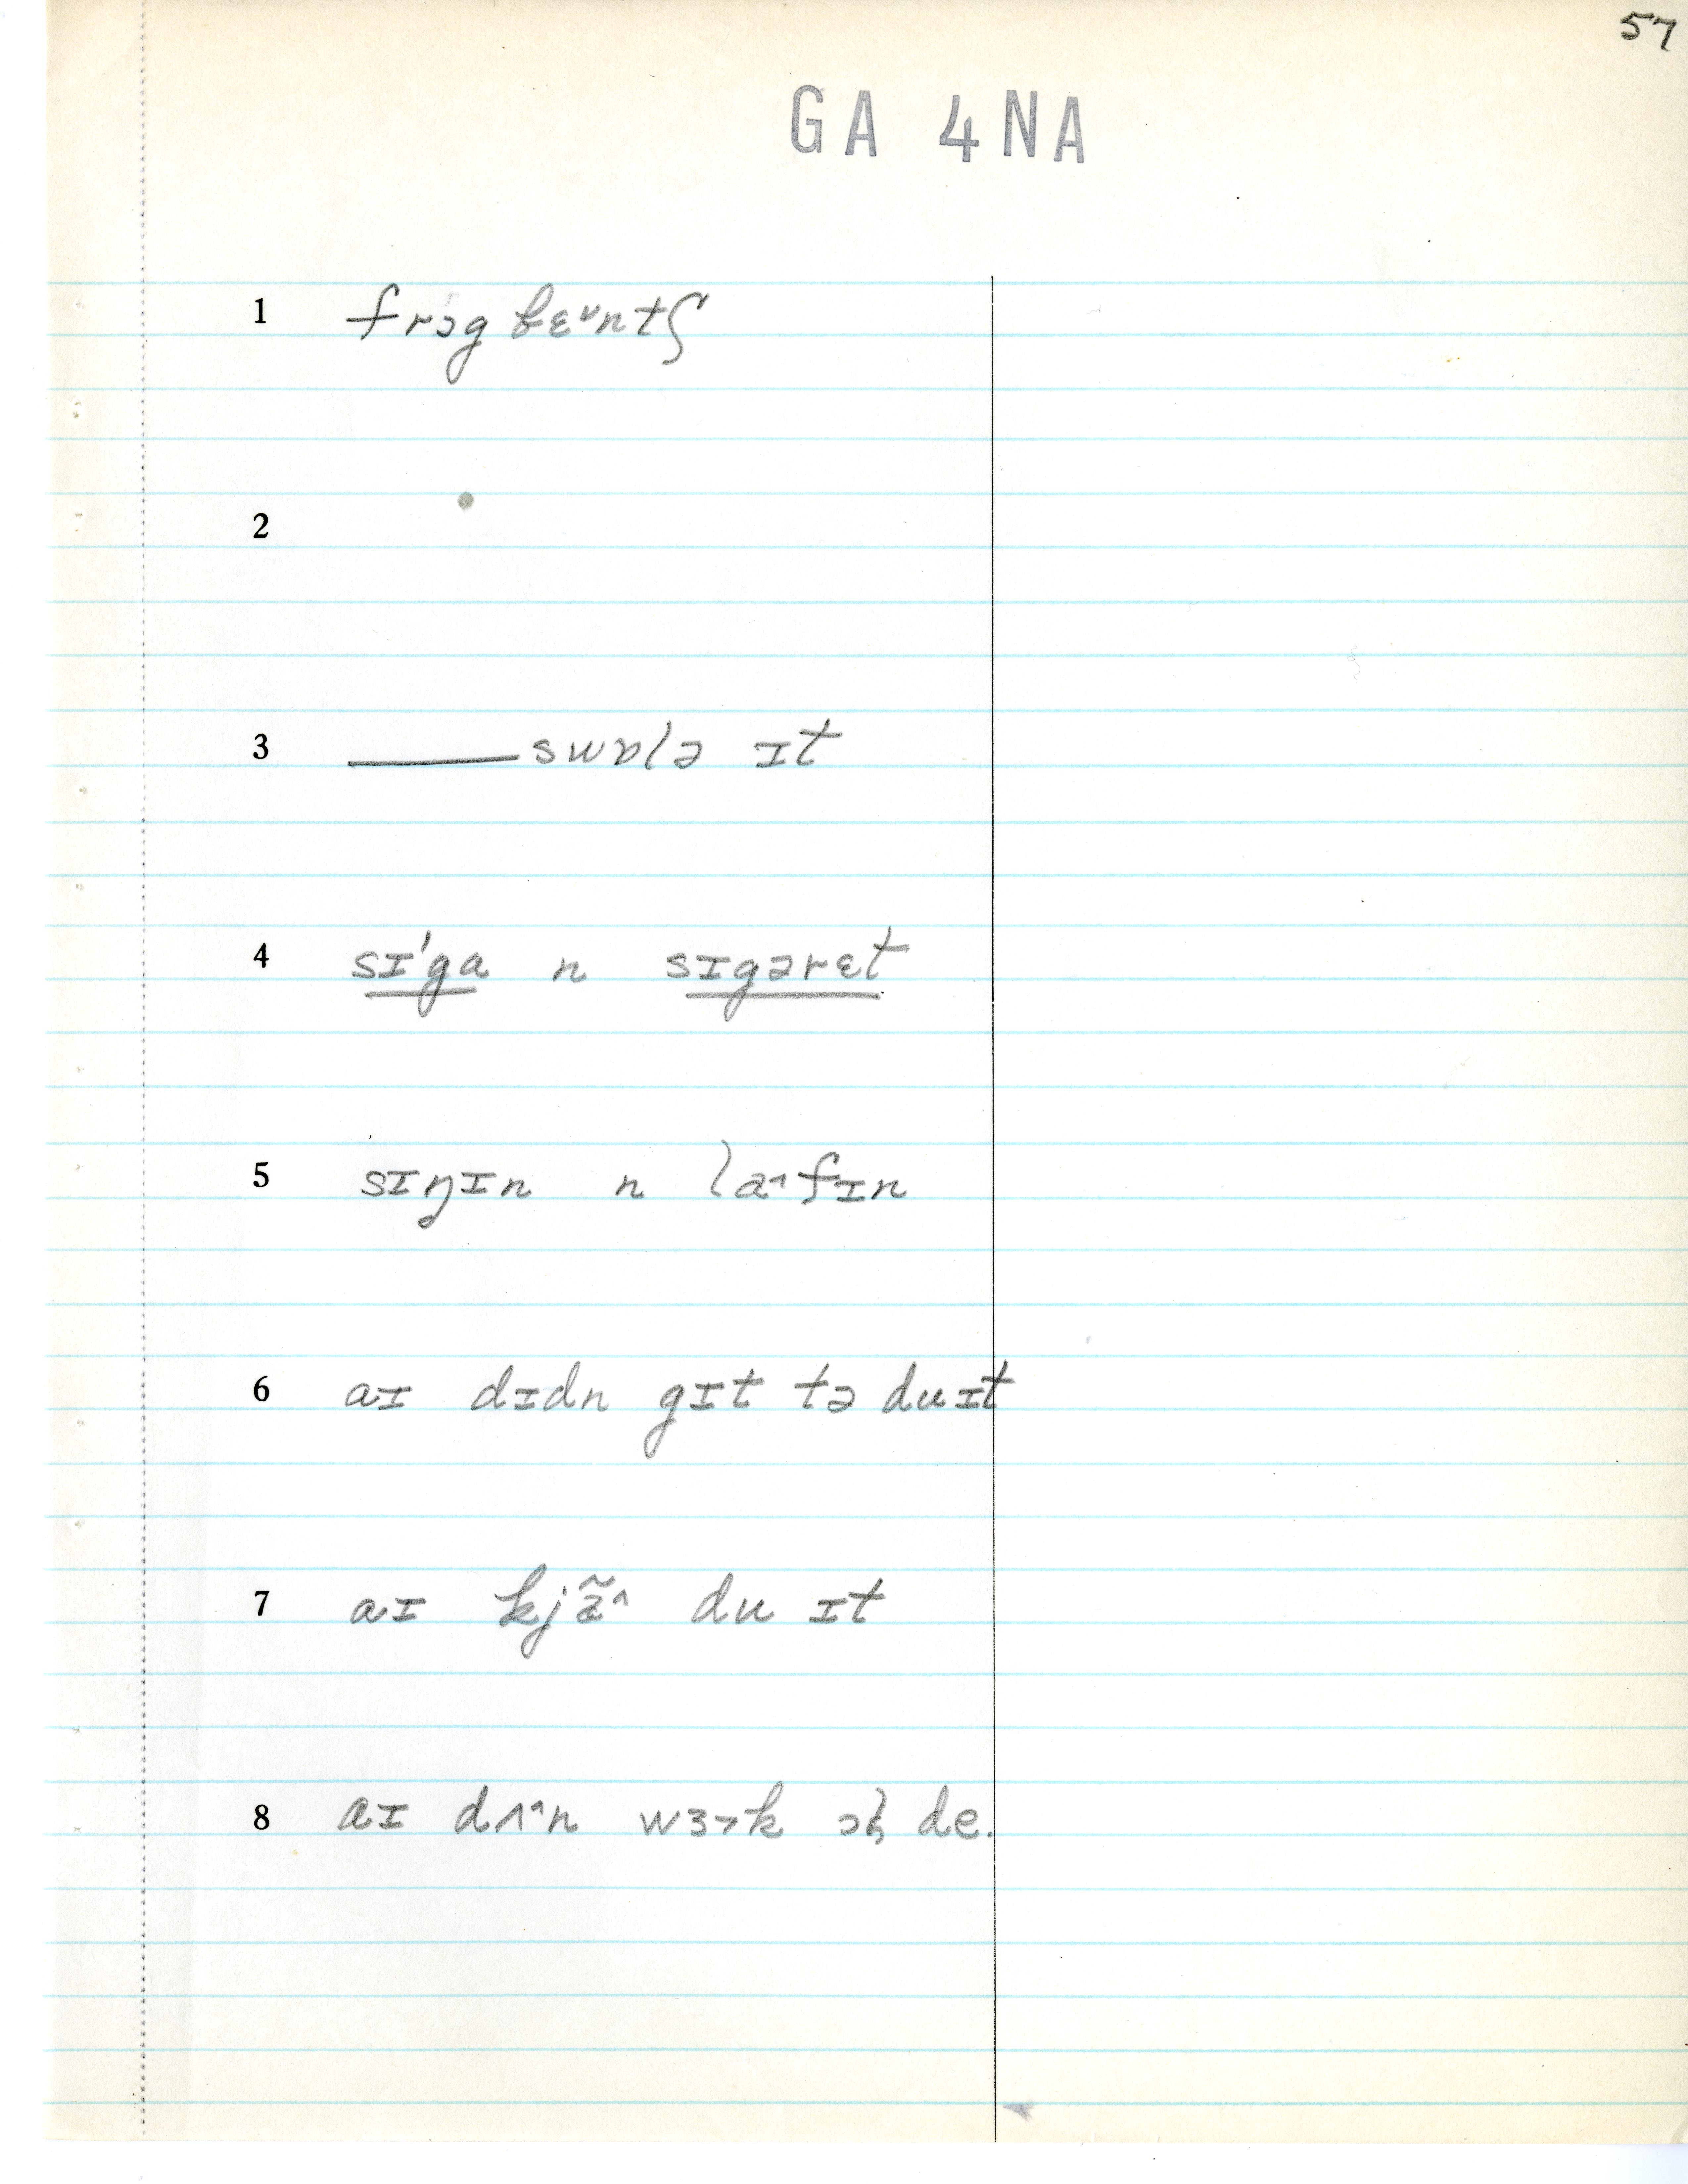 57
GA 4NA
1 frɔg bɛ˅ntʃ
2
3 ____ swɒlə ɪt
4 sɪ'ga n sɪgəret
5 sɪŋɪn n la˄fɪn
6 aɪ dɪdn gɪt tə du ɪt
7 aɪ kjæ̃˄ du ɪt
8 aɪ dʌ˄n wɜ˃k ɔɫ de.